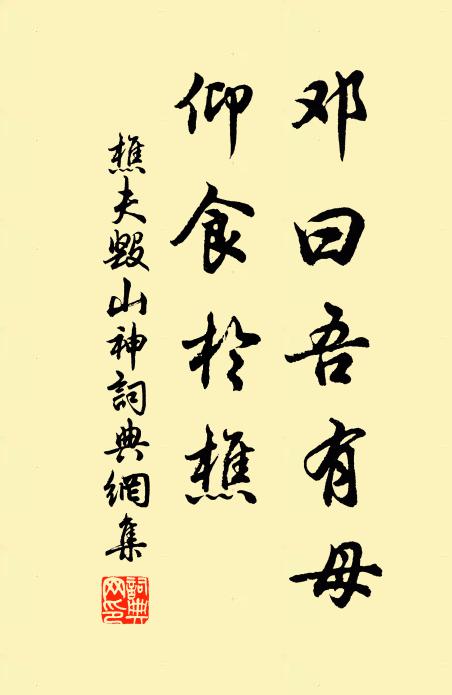 邓曰吾有母
仰食於樵
樵夫毁山神詞典網集
詞典網印